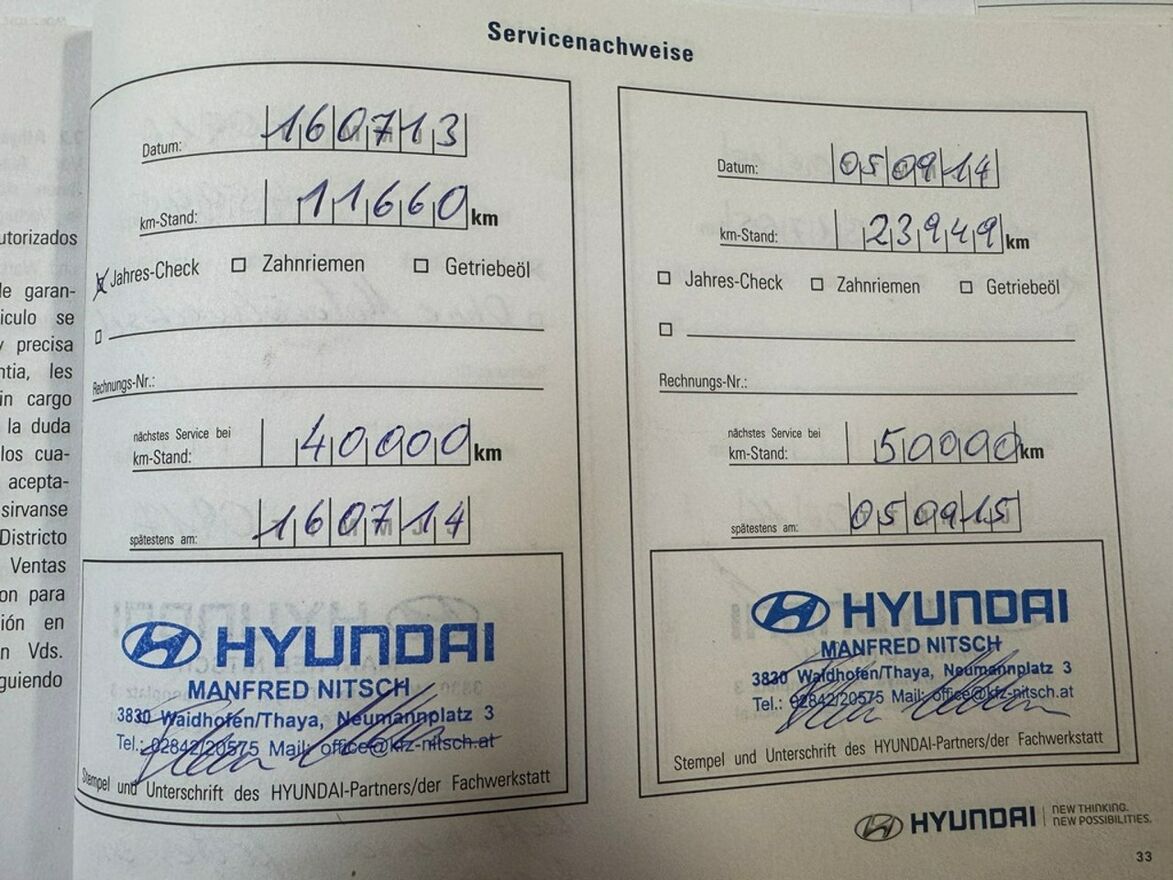 Servicenachweise
Datum: 160713
km-Stand: 11660 km
Jahres-Check Zahnriemen Getriebeöl
Rechnungs-Nr.:
nächstes Service bei
km-Stand: 40000 km
spätestens am: 160714
HYUNDAI
MANFRED NITSCH
3830 Waidhofen/Thaya, Neumannplatz 3
Tel.: 02842/20575 Mail: office@kfz-nitsch.at
Stempel und Unterschrift des HYUNDAI-Partners/der Fachwerkstatt
Datum: 050914
km-Stand: 23949 km
Jahres-Check Zahnriemen Getriebeöl
Rechnungs-Nr.:
nächstes Service bei
km-Stand: 50000 km
spätestens am: 050915
HYUNDAI
MANFRED NITSCH
3830 Waidhofen/Thaya, Neumannplatz 3
Tel.: 02842/20575 Mail: office@kfz-nitsch.at
Stempel und Unterschrift des HYUNDAI-Partners/der Fachwerkstatt
HYUNDAI
NEW THINKING.
NEW POSSIBILITIES.
33
utorizados
de garan-
iculo se
y precisa
ntia, les
in cargo
la duda
los cua-
acepta-
sirvanse
Districto
Ventas
on para
ión en
n Vds.
guiendo